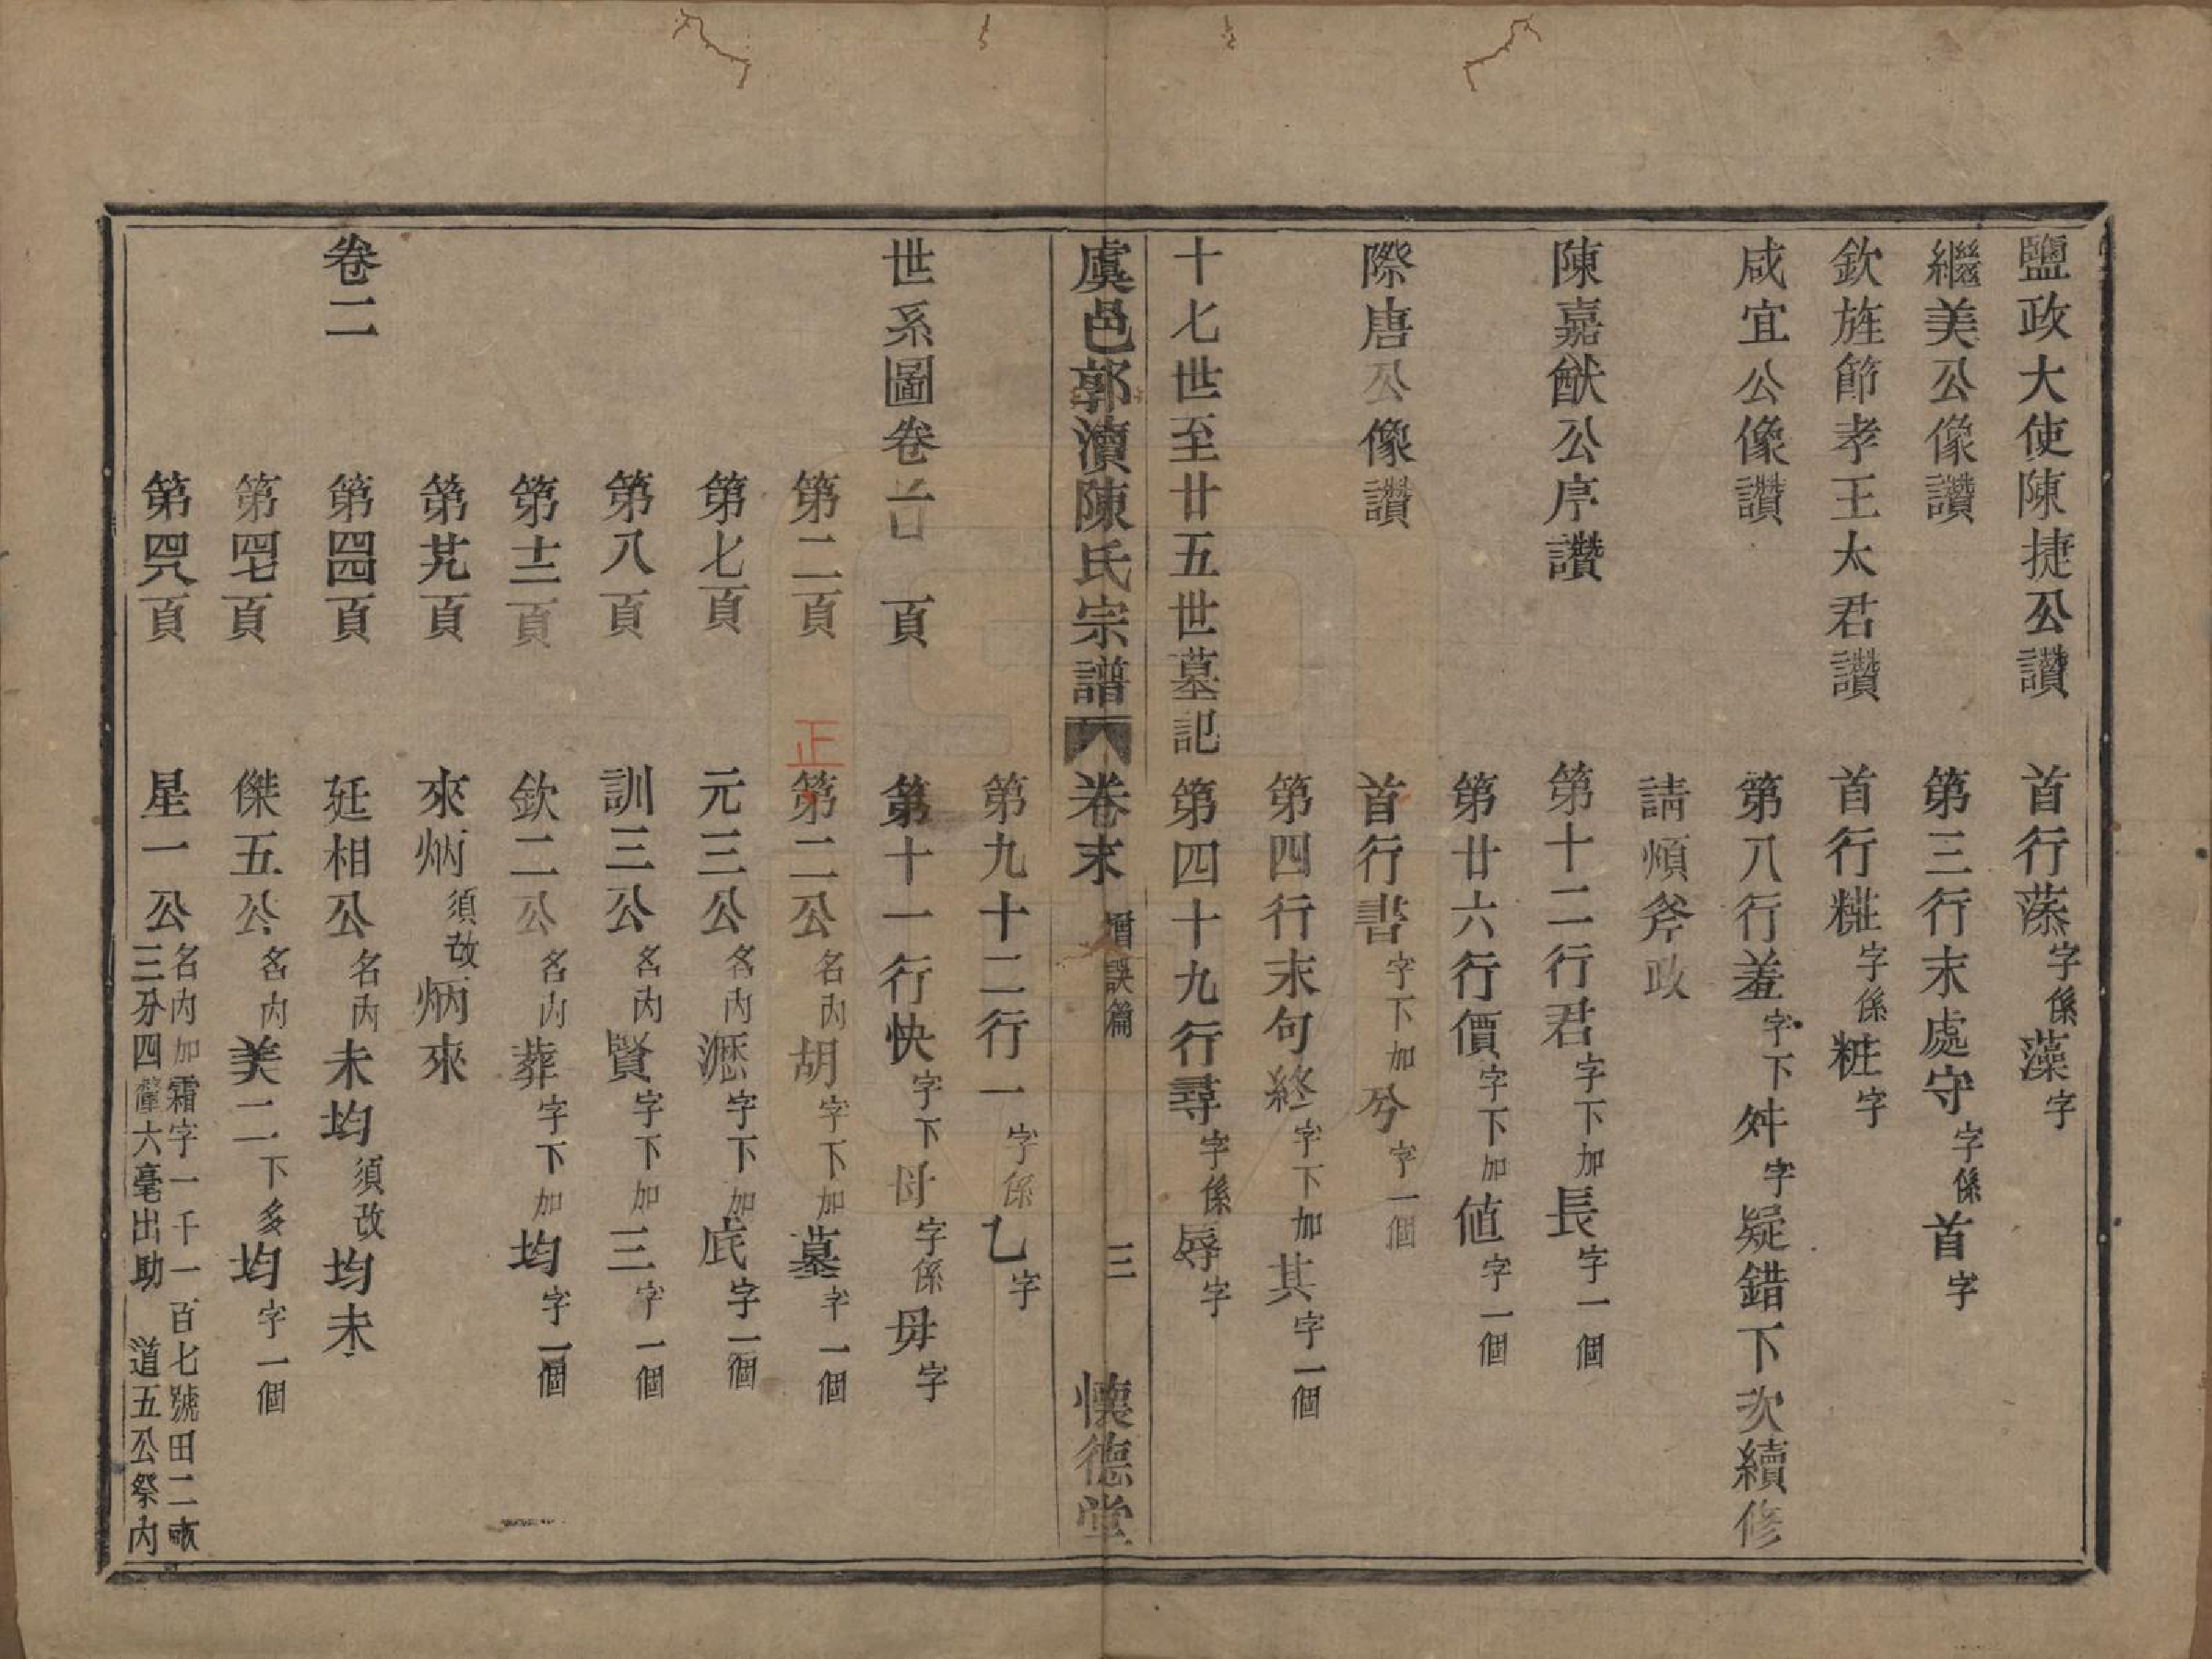 鹽政大使陳捷公讚　首行蕩字係藻字
繼美公像讚　第三行末處守字係首字
欽旌節孝王太君讚　首行粧字係粧字
咸宜公像讚　第八行羞字下舛字疑錯下次續修
請煩斧政
陳嘉猷公序讚　第十二行君字下加長字一個
第廿六行價字下加值字一個
際唐公像讚　首行書字下加兮字一個
第四行末句終字下加其字一個
十七世至廿五世墓記　第四十九行尋字係辱字
虞邑郭瀆陳氏宗譜　卷末　誤篇　三　懷德堂
第九十二行一字係乙字
世系圖卷　頁　第十一行快字下母字係毋字
第二頁　正　第二公名內胡字下加墓字一個
第七頁　元三公名內瀝字下加底字一個
第八頁　訓三公名內賢字下加三字一個
第十二頁　欽二公名內葬字下加均字一個
第廿九頁　來炳須改炳來
卷二　第四十四頁　延相公名內未均須改均未
第四十七頁　傑五公名內美二下多均字一個
第四十八頁　星一公名內加霜字一千一百七號田二畝三分四釐六毫出助　道五公祭內